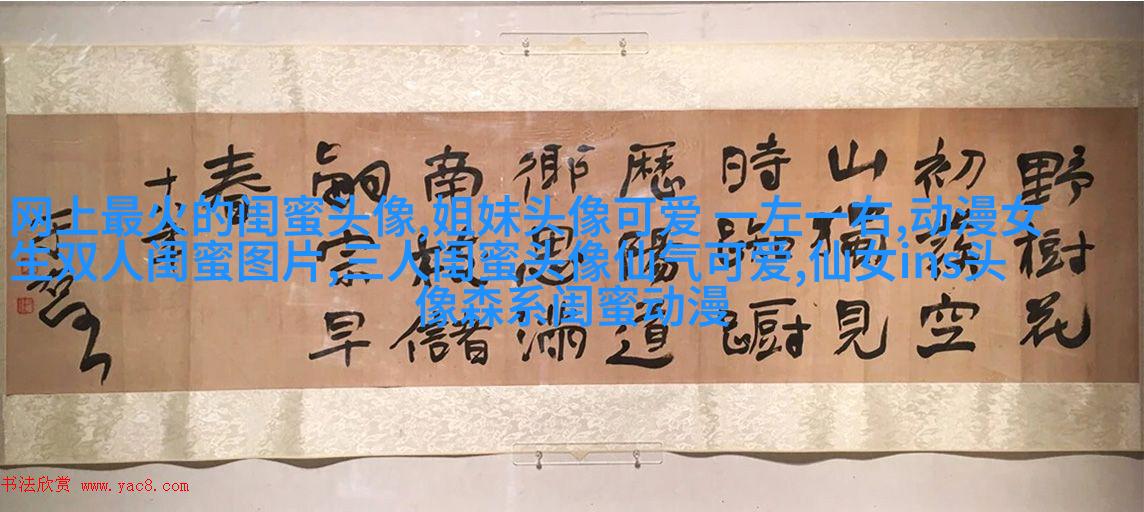 网上最火的闺蜜头像,姐妹头像可爱一左一右,动漫女
生双人闺蜜图片,三人闺蜜头像仙气可爱,仙女ins头
像森系闺蜜动漫
野樹花
初發空
山獨見
時踟躕
歷陽道
鄉思滿
南枝儲
嗣宗早
春
书法欣赏 www.yac8.com